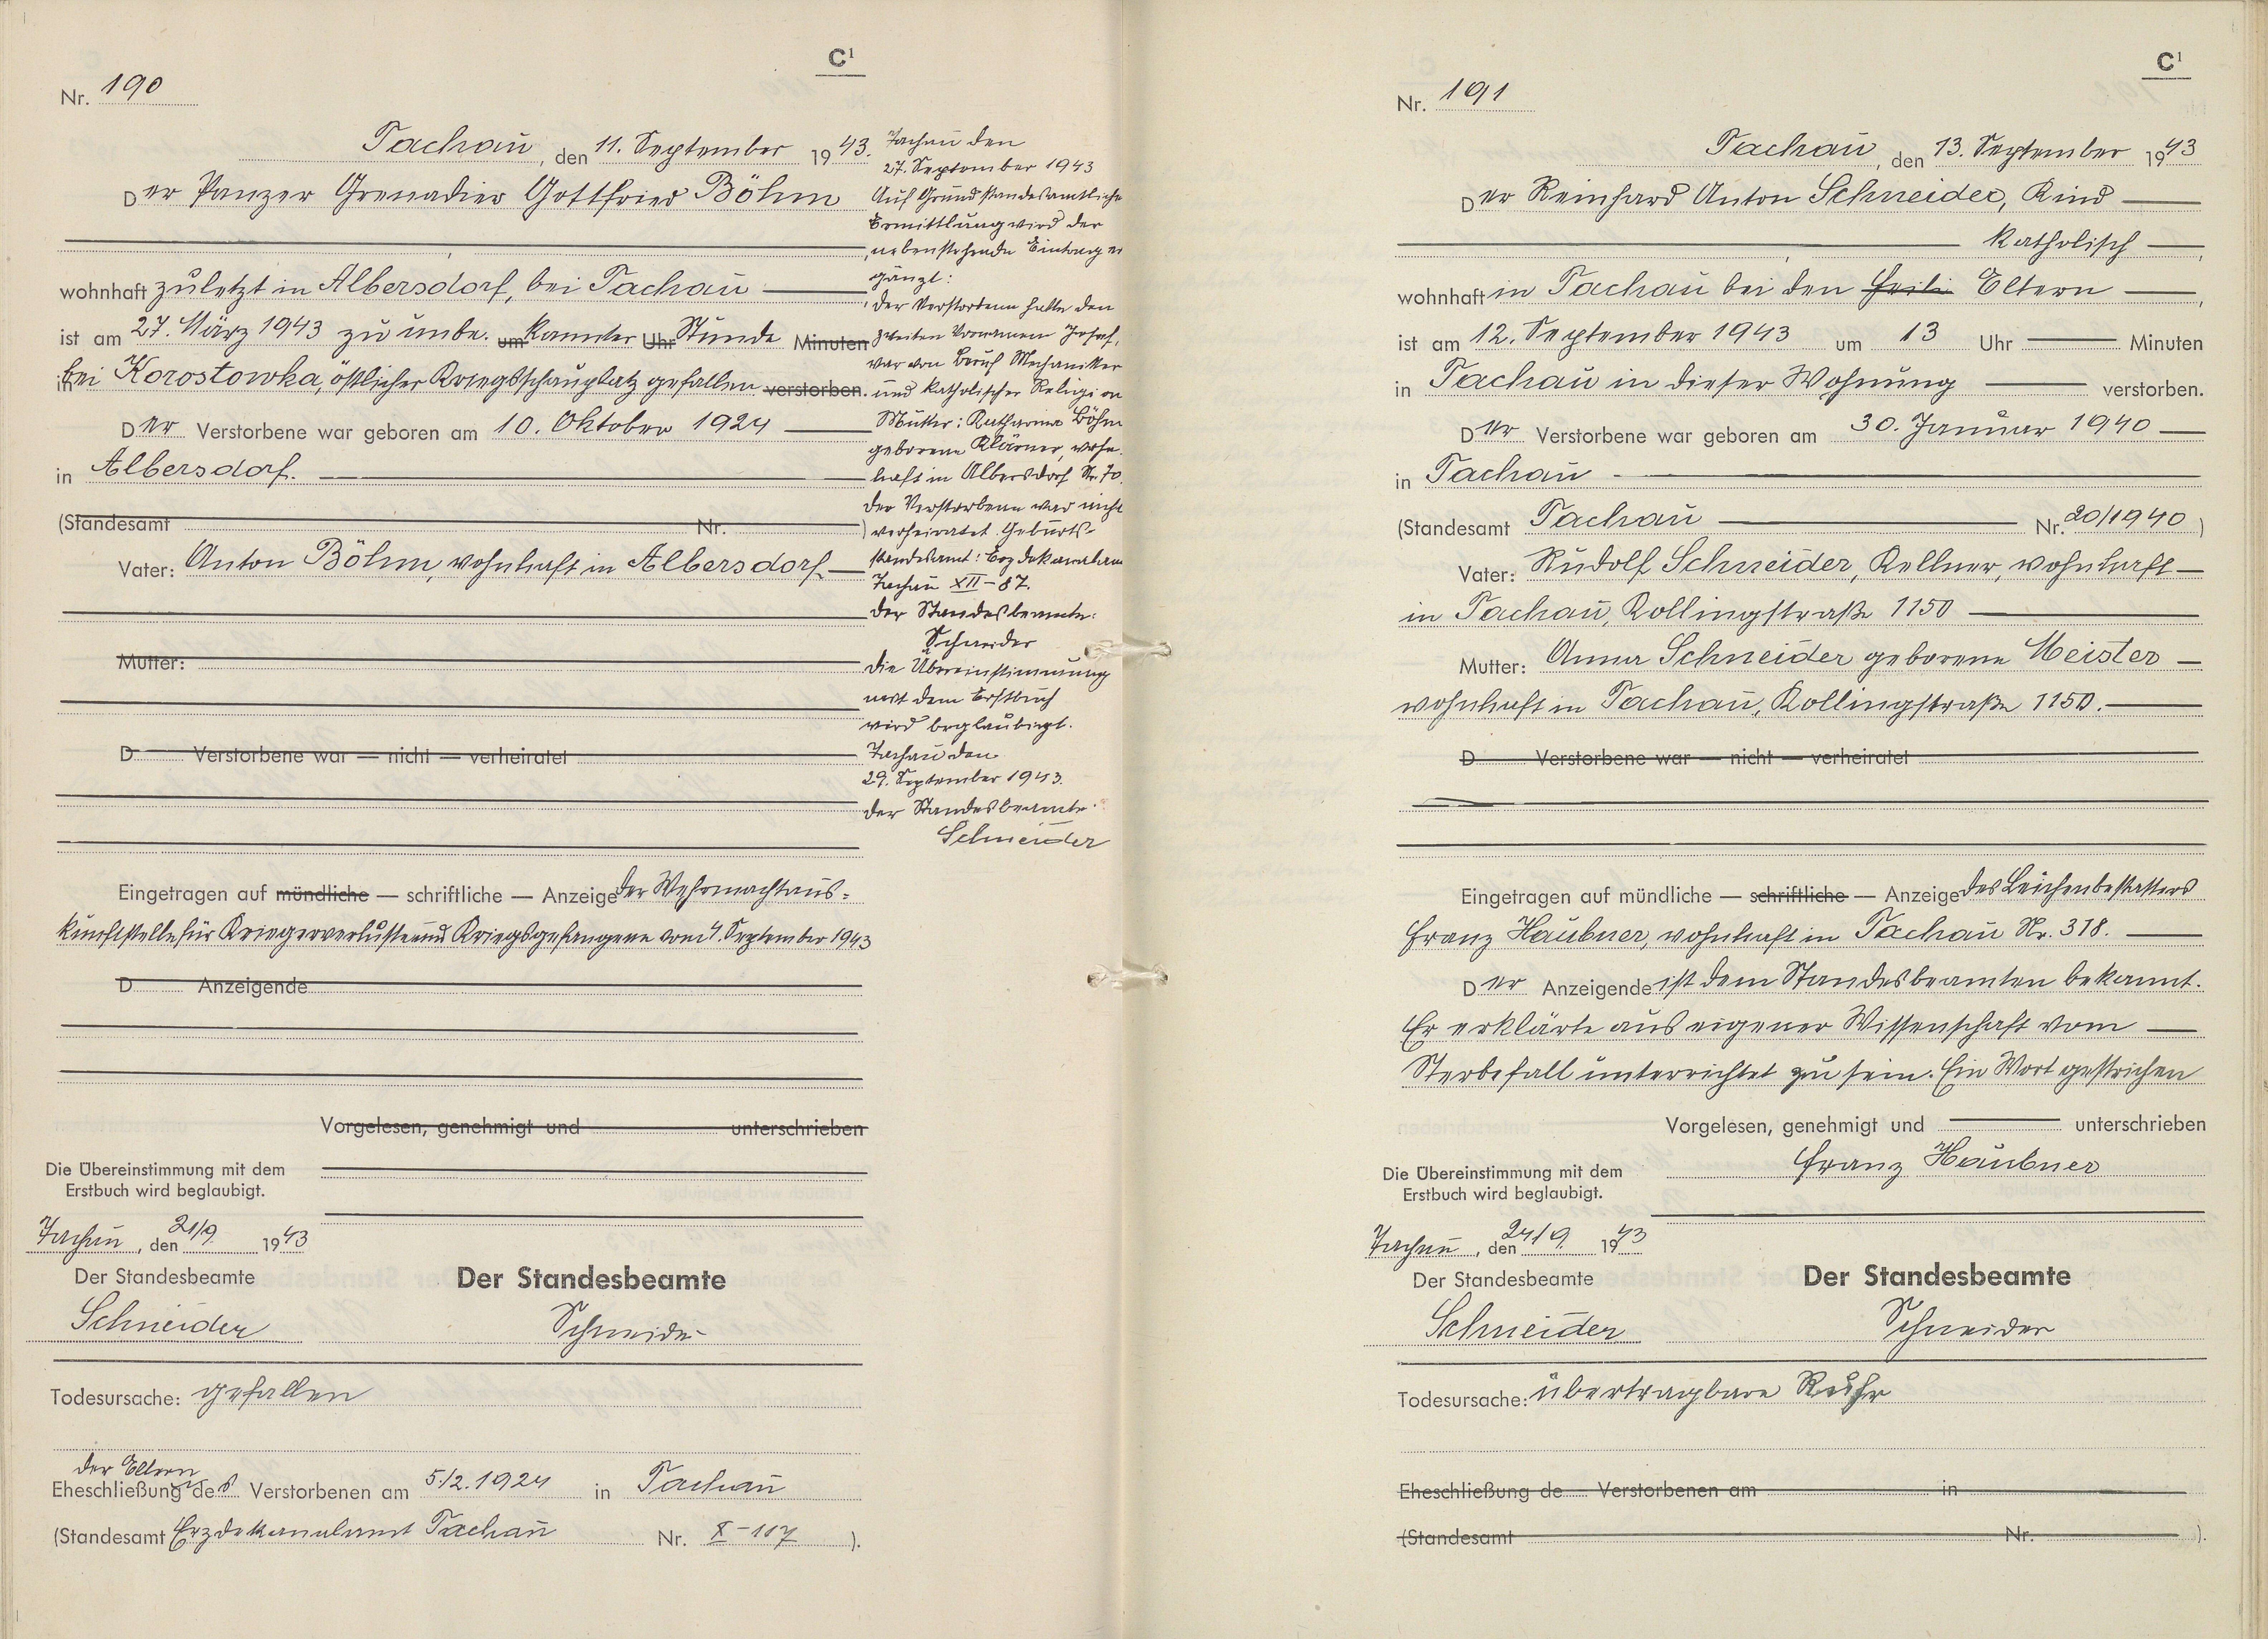 C¹
Nr. 190
Tachau, den 11. September 1943.
Der Panzer Grenadier Gottfried Böhm
wohnhaft zuletzt in Albersdorf, bei Tachau
ist am 27. März 1943 zu unbe. um kannter Uhr Stunde Minuten
in bei Korostowka, östlicher Kriegsschauplatz gefallen verstorben.
Der Verstorbene war geboren am 10. Oktober 1924
in Albersdorf.
(Standesamt Nr. )
Vater: Anton Böhm, wohnhaft in Albersdorf
Mutter:
D Verstorbene war — nicht — verheiratet
Eingetragen auf mündliche — schriftliche — Anzeige der Wehrmachtaus=
kunftstelle für Kriegerverluste und Kriegsgefangene vom 4. September 1943
D Anzeigende
Vorgelesen, genehmigt und unterschrieben
Die Übereinstimmung mit dem
Erstbuch wird beglaubigt.
Tachau, den 21/9 1943
Der Standesbeamte
Schneider
Der Standesbeamte
Schneider
Todesursache: gefallen
der Eltern
Eheschließung des Verstorbenen am 5./2.1924 in Tachau
(Standesamt Erzdekanalamt Tachau Nr. X-117 ).
Tachau den
27. September 1943
Auf Grund standesamtliche
Ermittlung wird der
nebenstehende Eintrag er
gänzt:
Der Verstorbene hatte den
zweiten Vornamen Josef,
war von Beruf Mechaniker
und katholischer Religion
Mutter: Katharina Böhm
geborene Klärner, wohn-
haft in Albersdorf Nr. 70.
Der Verstorbene war nicht
verheiratet Geburts-
standesamt: Erzdekanalamt
Tachau XII-87.
Der Standesbeamte:
Schneider
Die Übereinstimmung
mit dem Erstbuch
wird beglaubigt.
Tachau den
29. September 1943.
Der Standesbeamte.
Schneider
C¹
Nr. 191
Tachau, den 13. September 1943
Der Reinhard Anton Schneider, Kind
katholisch,
wohnhaft in Tachau bei den Eltern,
ist am 12. September 1943 um 13 Uhr Minuten
in Tachau in dieser Wohnung verstorben.
Der Verstorbene war geboren am 30. Januar 1940
in Tachau
(Standesamt Tachau Nr. 20/1940 )
Vater: Rudolf Schneider, Kellner, wohnhaft
in Tachau, Kollingstraße 1150
Mutter: Anna Schneider geborene Meister
wohnhaft in Tachau, Kollingstraße 1150.
D Verstorbene war — nicht — verheiratet
Eingetragen auf mündliche — schriftliche — Anzeige des Leichenbestatters
Franz Haubner, wohnhaft in Tachau Nr. 318.
Der Anzeigende ist dem Standesbeamten bekannt.
Er erklärte aus eigener Wissenschaft vom
Sterbefall unterrichtet zu sein. Ein Wort gestrichen
Vorgelesen, genehmigt und unterschrieben
Franz Haubner
Die Übereinstimmung mit dem
Erstbuch wird beglaubigt.
Tachau, den 24/9. 1943
Der Standesbeamte
Schneider
Der Standesbeamte
Schneider
Todesursache: übertragbare Ruhr
Eheschließung de Verstorbenen am in
(Standesamt Nr. ).